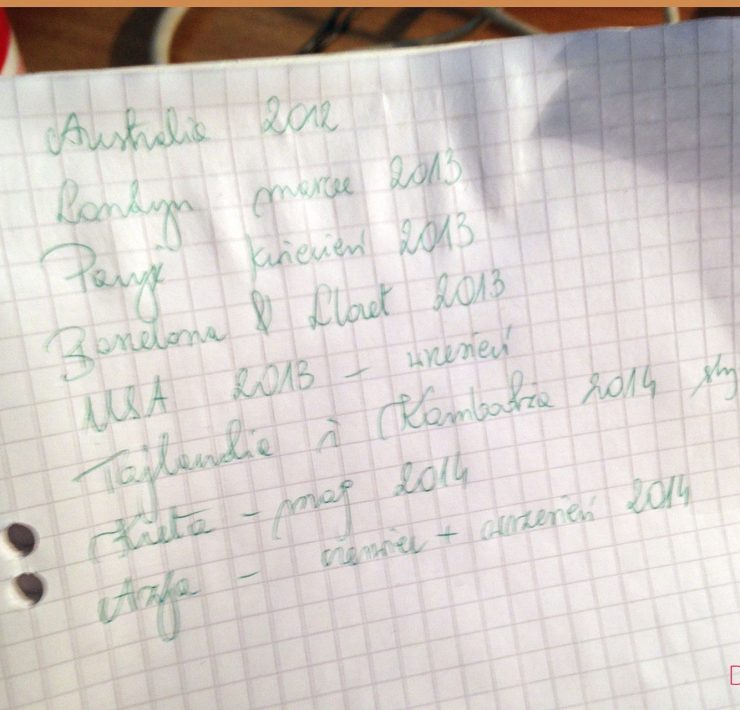 Australia 2012
Londyn marzec 2013
Paryż kwiecień 2013
Barcelona & Lloret 2013
USA 2013 - wrzesień
Tajlandia i Kambodża 2014 sty
Kreta - maj 2014
Azja - czerwiec + wrzesień 2014
D